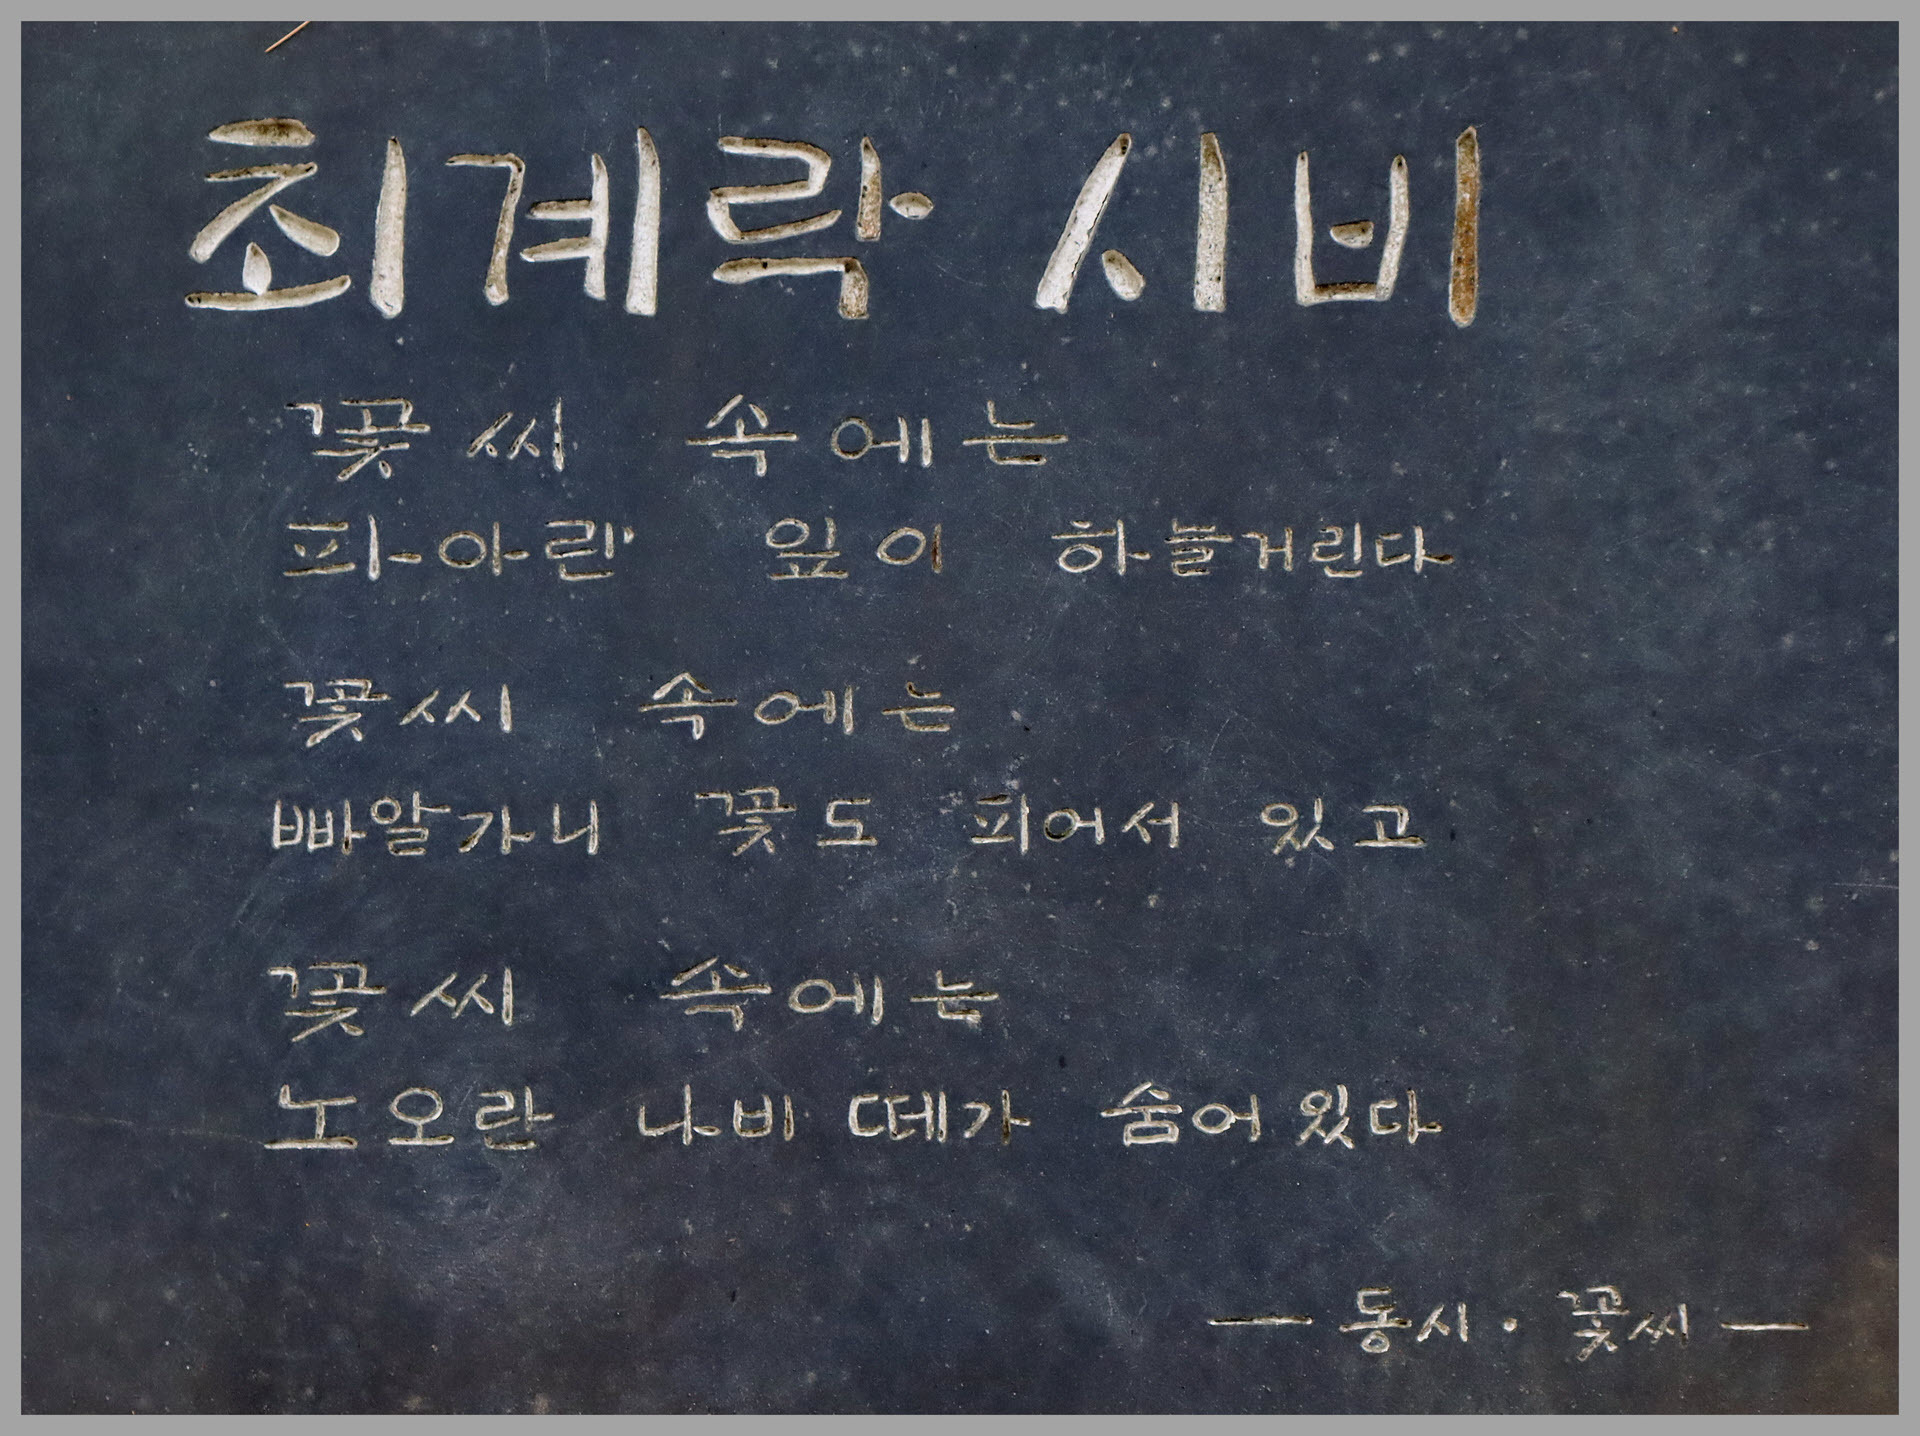 최계락 시비
꽃씨 속에는
파아란 잎이 하늘거린다
꽃씨 속에는
빠알가니 꽃도 피어서 있고
꽃씨 속에는
노오란 나비 떼가 숨어있다
— 동시 · 꽃씨 —